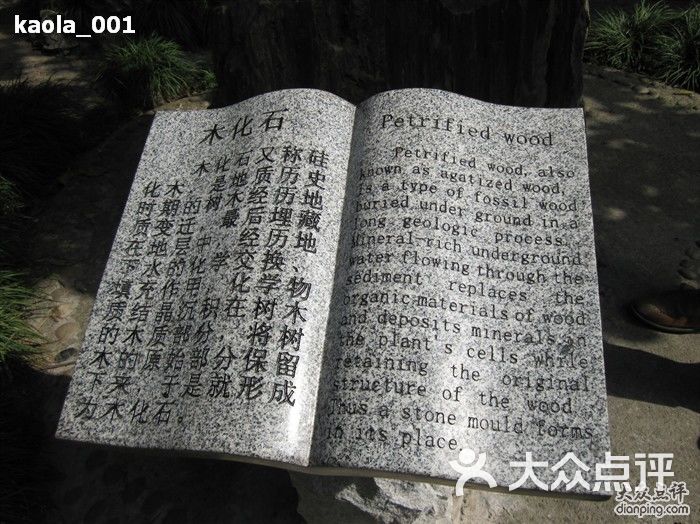 kaola_001
木化石
木化石又称硅
化木,是地质历史
时期的树木经历地
质变迁,最后埋藏
在地层中,经历地
下水的化学交换、
填充作用,化学物
质结晶沉积在树木
的木质部分,将树
木的原始部分保留
下来,于是就形成
为木化石。
Petrified wood
Petrified wood, also
known as agatized wood,
is a type of fossil wood
buried under ground in a
long geologic process.
Mineral-rich underground
water flowing through the
sediment replaces the
organic materials of wood
and deposits minerals in
the plant's cells while
retaining the original
structure of the wood.
Thus a stone mould forms
in its place.
大众点评
大众点评
dianping.com